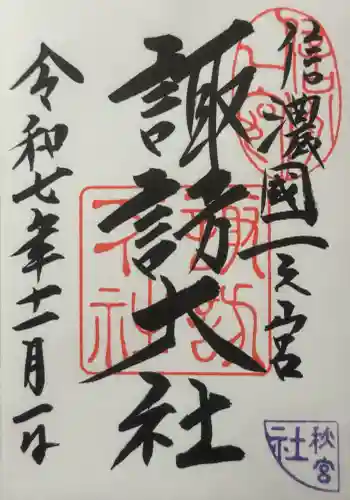 信濃國一之宮
諏訪大社
令和七年十一月一日
諏訪大社
秋宮
社